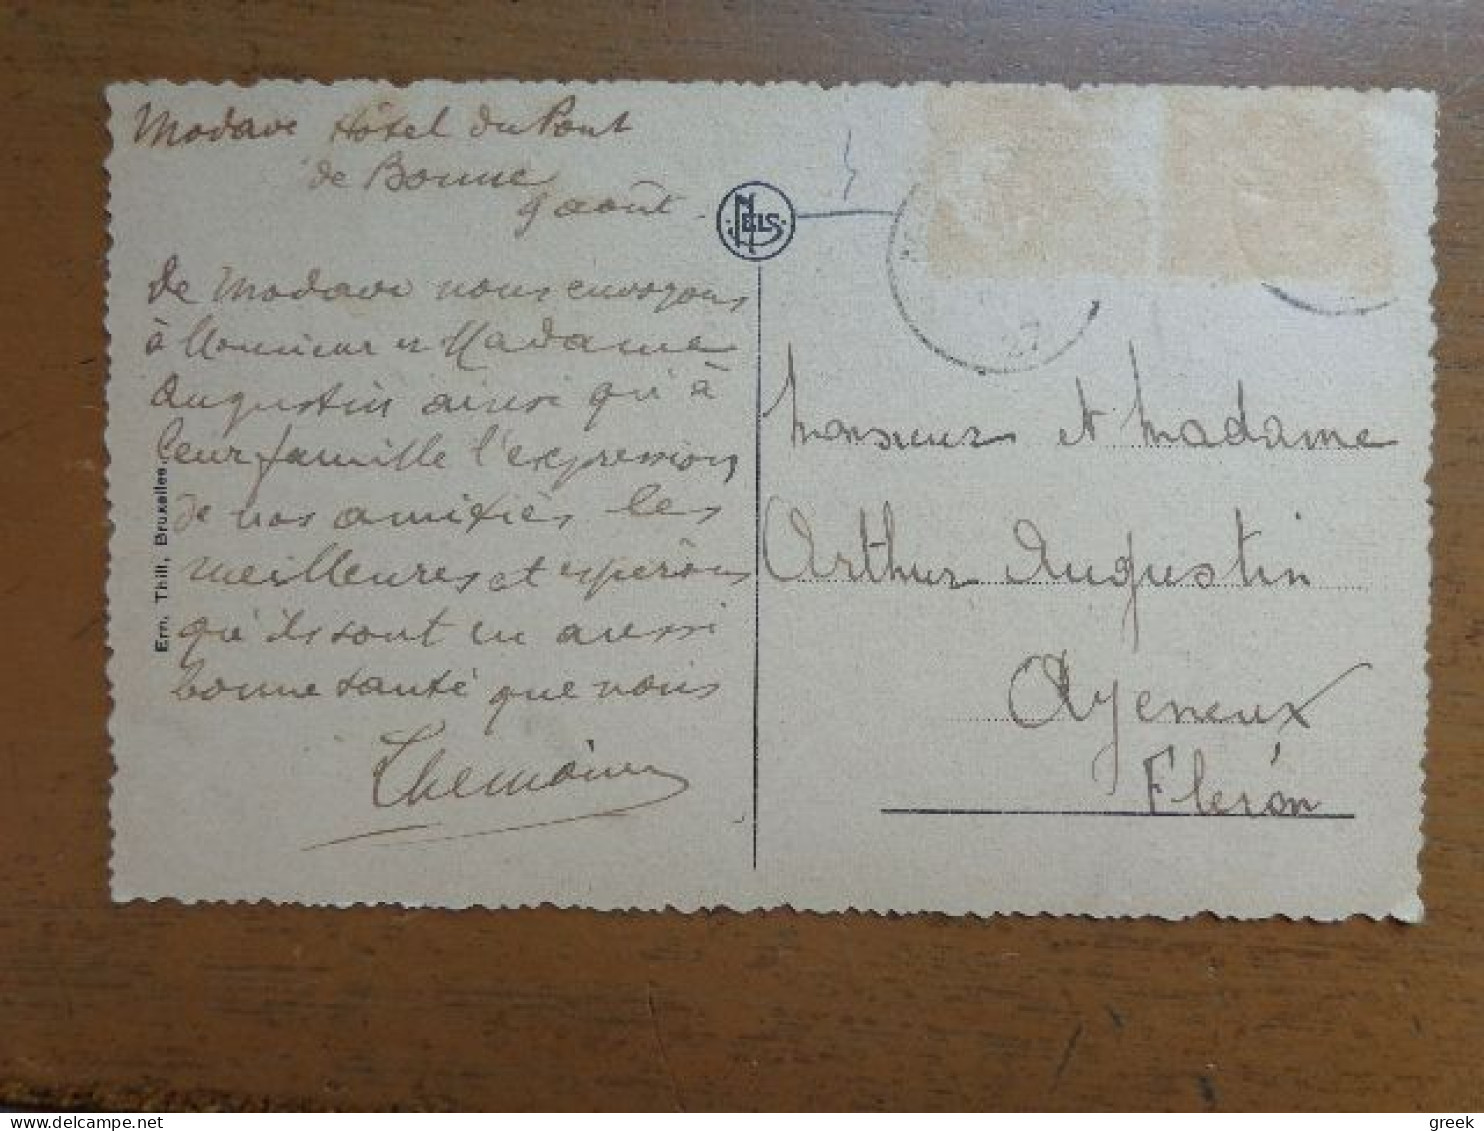 Modave Hôtel du Pont
de Bonne
9 août.
de Modave nous envoyons
à Monsieur et Madame
Augustin ainsi qu'à
leur famille l'expression
de nos amitiés les
meilleures et espérons
qu'ils sont en aussi
bonne santé que nous
Ern. Thill, Bruxelles.
NELS
27
Monsieur et Madame
Arthur Augustin
Ayeneux
Fléron
greek